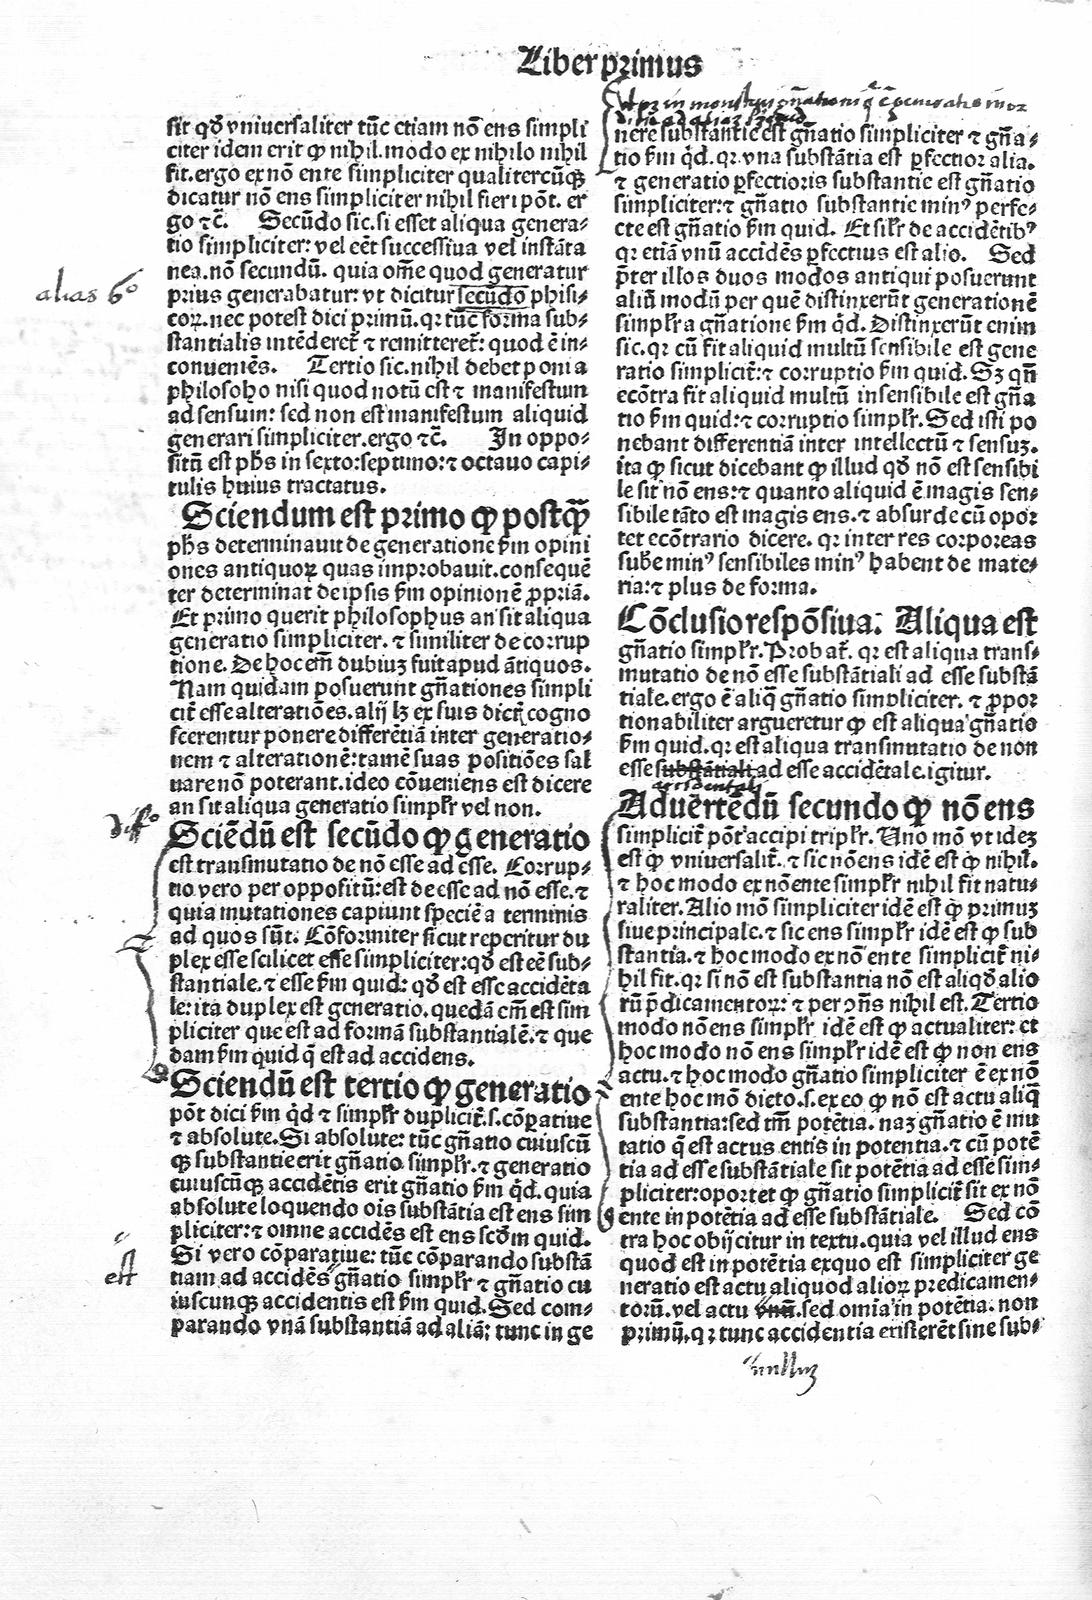 Liber primus
sit qđ vniuersaliter tūc etiam nō ens simpli
citer idem erit ꝙ nihil. modo ex nihilo nihil
fit. ergo ex nō ente simpliciter qualitercūꝙ
dicatur nō ens simpliciter nihil fieri pōt. er
go ⁊c̄. Secūdo sic. si esset aliqua genera⸗
tio simpliciter: vel eēt successiua vel instāta
nea. nō secundū. quia om̄e quod generatur
alias 6º
prius generabatur: vt dicitur secūdo phisi⸗
coꝝ. nec potest dici primū. qꝛ tūc forma sub⸗
stantialis intēderet̄ ⁊ remitteret̄: quod ē in⸗
conueniēs. Tertio sic. nihil debet poni a
philosoho nisi quod notū est ⁊ manifestum
ad sensum: sed non est manifestum aliquid
generari simpliciter. ergo ⁊c̄. In oppo⸗
sitū est ph̄s in sexto: septimo: ⁊ octauo capi⸗
tulis huius tractatus.
Sciendum est primo ꝙ postꝙ̄
ph̄s determinauit de generatione ẜm opini
ones antiquoꝝ quas improbauit. consequē
ter determinat de ipsis ẜm opinionē ꝓpriā.
Et primo querit philosophus an sit aliqua
generatio simpliciter. ⁊ similiter de corrup
tione. De hoc em̄ dubiuꝫ fuit apud ātiquos.
Nam quidam posuerunt gn̄ationes simpli
cit̄ esse alteratiōes. alij lꝫ ex suis dict̄ cogno
scerentur ponere differētiā inter generatio⸗
nem ⁊ alterationē: tamē suas positiōes sal
uare nō poterant. ideo cōueniens est dicere
an sit aliqua generatio simplr̄ vel non.
Sciēdū est secūdo ꝙ generatio
est transmutatio de nō esse ad esse. Corrup⸗
tio vero per oppositū: est de esse ad nō esse. ⁊
quia mutationes capiunt speciē a terminis
ad quos sūt. Cōformiter sicut reperitur du
plex esse scilicet esse simpliciter: qđ est eē sub⸗
stantiale. ⁊ esse ẜm quid: qđ est esse accidēta
le: ita duplex est generatio. quedā em̄ est sim
pliciter que est ad formā substantialē. ⁊ que
dam ẜm quid q̄ est ad accidens.
Sciendū est tertio ꝙ generatio
pōt dici ẜm qd̄ ⁊ simplr̄ duplicit̄. s. cōpatiue
⁊ absolute. Si absolute: tūc gn̄atio cuiuscū
ꝙ substantie erit gn̄atio simplr̄. ⁊ generatio
cuiuscūꝙ accidētis erit gn̄atio ẜm qd̄. quia
absolute loquendo oīs substātia est ens sim
pliciter: ⁊ omne accidēs est ens scdm̄ quid.
Si vero cōparatiue: tūc cōparando substā
est
tiam ad accidēs gn̄atio simplr̄ ⁊ gn̄atio cu
iuscunꝙ accidentis est ẜm quid. Sed com⸗
parando vnā substantiā ad aliā: tunc in ge
nere substantie est gn̄atio simpliciter ⁊ gn̄a⸗
tio ẜm qd̄. qꝛ vna substātia est perfectior alia.
⁊ generatio perfectioris substantie est gn̄atio
simpliciter: ⁊ gn̄atio substantie minꝰ perfe⸗
cte est gn̄atio ẜm quid. Et silr̄ de accidētibꝰ
qꝛ etiā vnū accidēs perfectius est alio. Sed
pter̄ illos duos modos antiqui posuerunt
aliū modū per quē distinxerūt generationē
simplr̄ a gn̄atione ẜm qd̄. Distinxerūt enim
sic. qꝛ cū fit aliquid multū sensibile est gene
ratio simplicit̄: ⁊ corruptio ẜm quid. Sꝫ qn̄
ecōtra fit aliquid multū insensibile est gn̄a
tio ẜm quid: ⁊ corruptio simplr̄. Sed isti po
nebant differentiā inter intellectū ⁊ sensuꝫ.
ita ꝙ sicut dicebant ꝙ illud qđ nō est sensibi
le sit nō ens: ⁊ quanto aliquid ē magis sen⸗
sibile tāto est magis ens. ⁊ absurde cū opor
tet ecōtrario dicere. qꝛ inter res corporeas
sube minꝰ sensibiles minꝰ habent de mate⸗
ria: ⁊ plus de forma.
Cōclusio respōsiua. Aliqua est
gn̄atio simplr̄. Probat̄. qꝛ est aliqua trans⸗
mutatio de nō esse substātiali ad esse substā
tiale. ergo ē aliq̄ gn̄atio simpliciter. ⁊ ꝓpor
tionabiliter argueretur ꝙ est aliqua gn̄atio
ẜm quid. qꝛ est aliqua transmutatio de non
esse substātiali ad esse accidētale. igitur.
accidentali
Aduertēdū secundo ꝙ nō ens
simplicit̄ pōt accipi triplr̄. Uno mō vt ideꝫ
est ꝙ vniuersalit̄. ⁊ sic nō ens idē est ꝙ nihil.
⁊ hoc modo ex nō ente simplr̄ nihil fit natu⸗
raliter. Alio mō simpliciter idē est ꝙ primuꝫ
siue principale. ⁊ sic ens simplr̄ idē est ꝙ sub
stantia. ⁊ hoc modo ex nō ente simplicit̄ ni⸗
hil fit. qꝛ si nō est substantia nō est aliqđ alio
rū p̄dicamentoꝝ: ⁊ per ꝯn̄s nihil est. Tertio
modo nō ens simplr̄ idē est ꝙ actualiter: et
hoc modo nō ens simplr̄ idē est ꝙ non ens
actu. ⁊ hoc modo gn̄atio simpliciter ē ex nō
ente hoc mō dicto. s. ex eo ꝙ nō est actu aliq̄
substantia: sed tm̄ potētia. naꝫ gn̄atio ē mu
tatio q̄ est actus entis in potentia. ⁊ cū potē
tia ad esse substātiale sit potētia ad esse sim⸗
pliciter: oportet ꝙ gn̄atio simplicit̄ sit ex nō
ente in potētia ad esse substātiale. Sed cō
tra hoc obijcitur in textu. quia vel illud ens
quod est in potētia ex quo est simpliciter ge
neratio est actu aliquod alioꝝ predicamen⸗
torū. vel actu vnū. sed omīa in potētia. non
primū. qꝛ tunc accidentia existerēt sine sub⸗
nulluꝫ